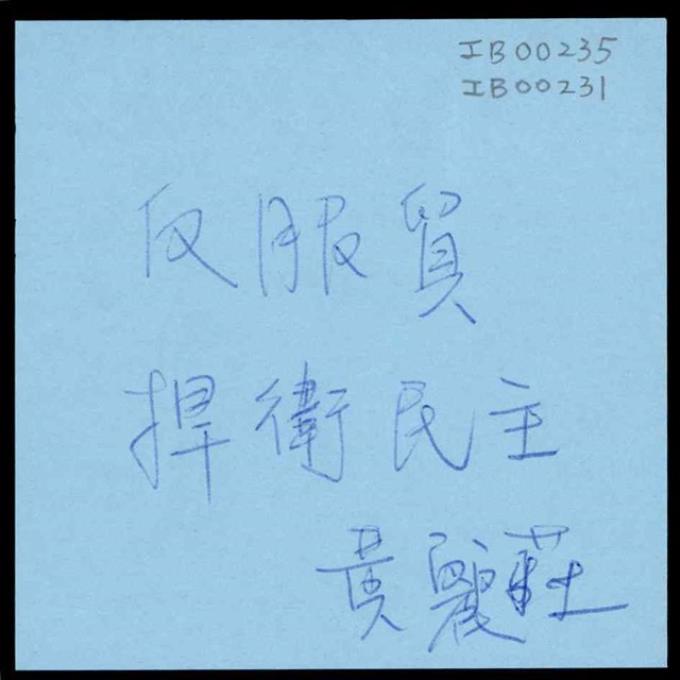 IB00235
IB00231
反服貿
捍衛民主
黃麗莊